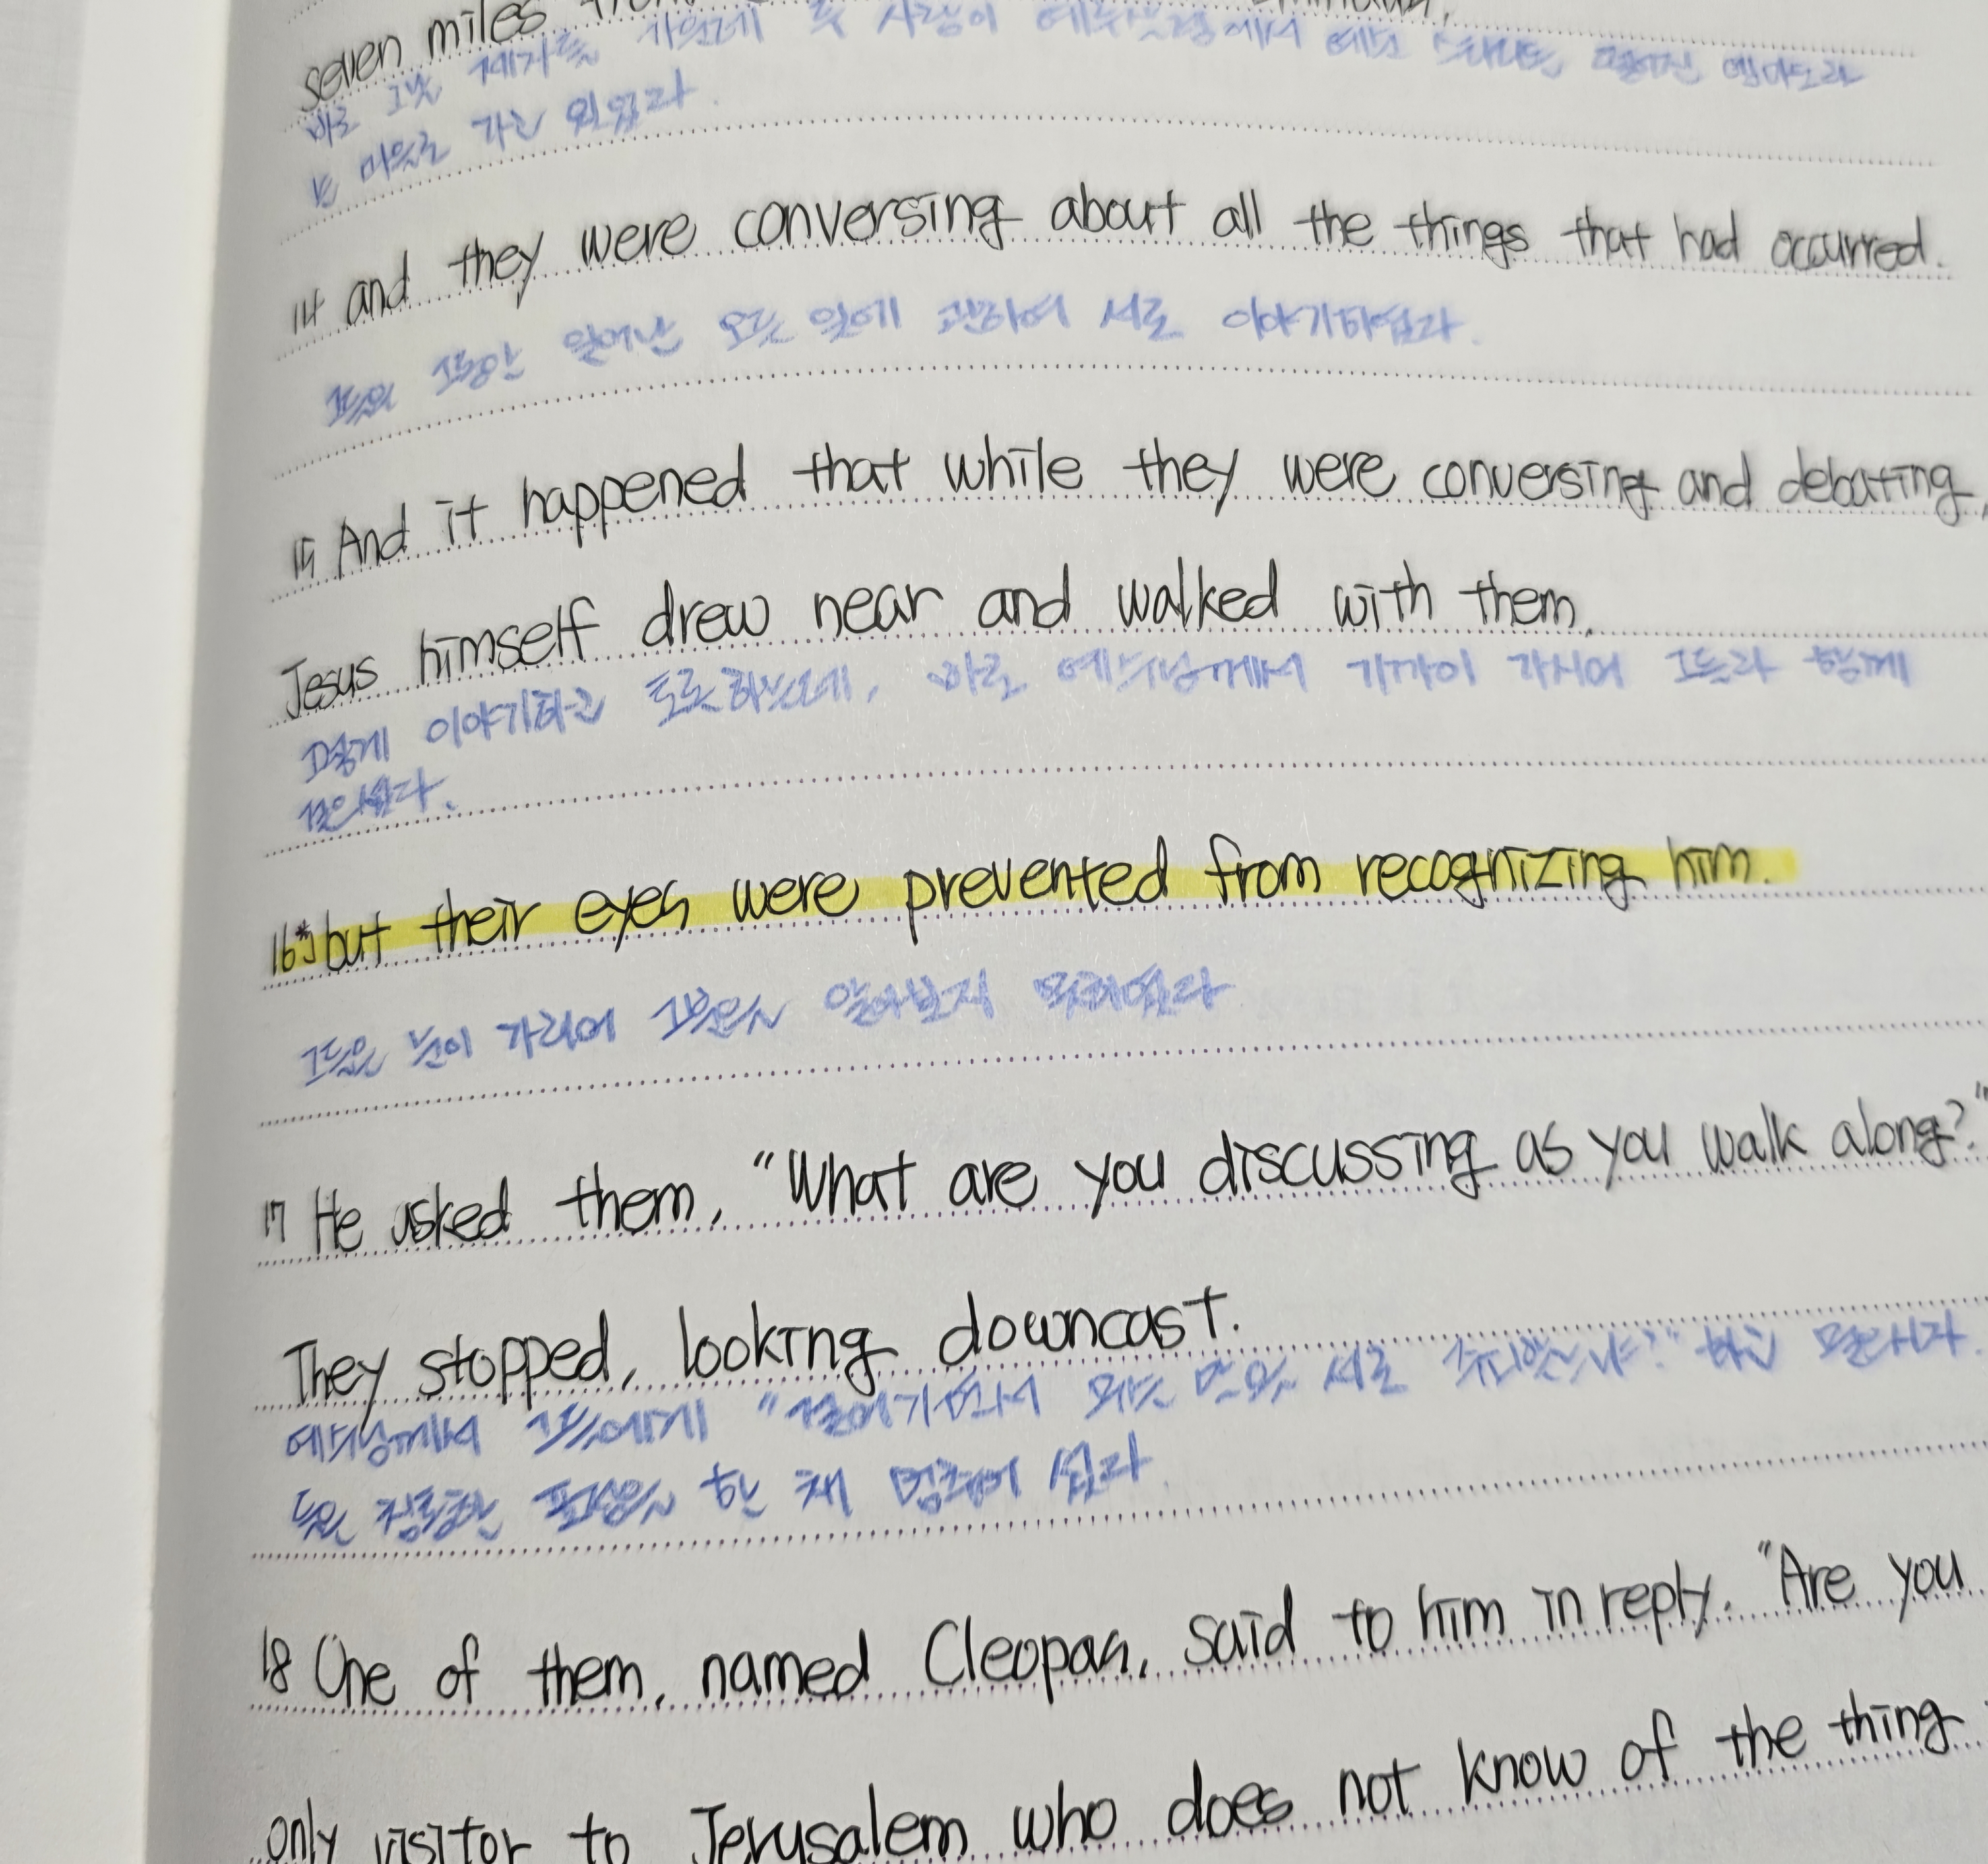 seven miles
바로 그날 제자들 가운데 두 사람이 예루살렘에서 예순 스타디온 떨어진 엠마오라
는 마을로 가고 있었다.
14 and they were conversing about all the things that had occurred.
그들의 그동안 일어난 모든 일에 관하여 서로 이야기하였다.
15 And it happened that while they were conversing and debating,
Jesus himself drew near and walked with them,
그렇게 이야기하고 토론하는데, 바로 예수님께서 가까이 가시어 그들과 함께
걸으셨다.
16*J but their eyes were prevented from recognizing him.
그들은 눈이 가리어 그분을 알아보지 못하였다
17 He asked them, "What are you discussing as you walk along?"
They stopped, looking downcast.
예수님께서 그들에게 "걸어가면서 무슨 말을 서로 주고받느냐?" 하고 물으시자.
들은 침통한 표정을 한 채 멈추어 섰다.
18 One of them, named Cleopas, said to him in reply. "Are you
only visitor to Jerusalem who does not know of the thing